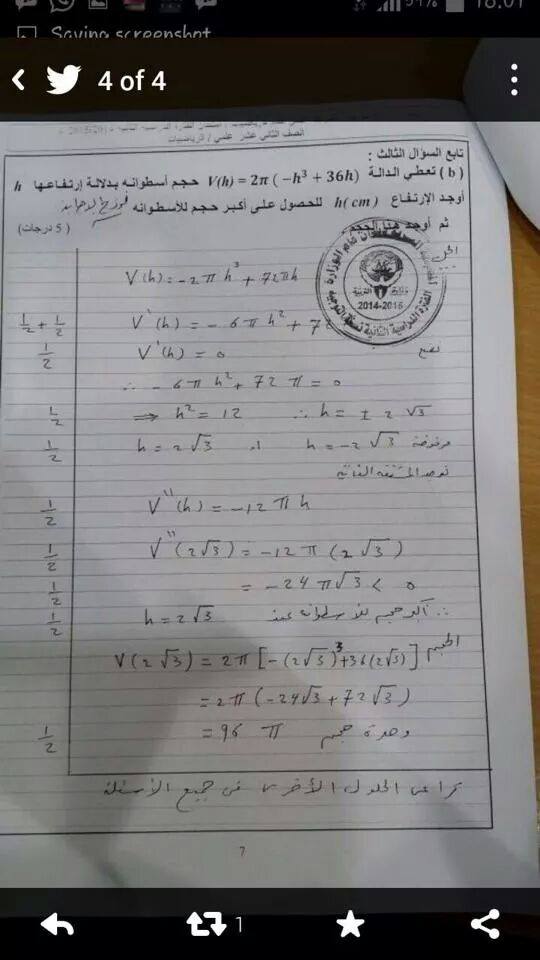 18:01
Saving screenshot
4 of 4
الصف الثاني عشر علمي / الرياضيات
تابع السؤال الثالث :
( b ) تعطي الدالة V(h) = 2π ( −h³ + 36h) حجم أسطوانه بدلالة إرتفاعها h
أوجد الإرتفاع h( cm) للحصول على أكبر حجم للأسطوانه
ثم أوجد هذا الحجم ( 5 درجات)
2014-2015
الحل
V(h) = -2πh³ + 72πh
½ + ½ V'(h) = - 6πh² + 72
نضع
½ V'(h) = 0
∴ - 6πh² + 72π = 0
½ ⇒ h² = 12 ∴ h = ± 2√3
½ h = 2√3 او h = -2√3 مرفوضة
نوجد المشتقة الثانية
½ V''(h) = -12πh
½ V''(2√3) = -12π(2√3)
½ = -24π√3 < 0
½ ∴ أكبر حجم للأسطوانة عند h = 2√3
الحجم V(2√3) = 2π[-(2√3)³+36(2√3)]
= 2π(-24√3 + 72√3)
½ = 96 π وحدة حجم
تراعى الحلول الأخرى في جميع الأسئلة
7
1